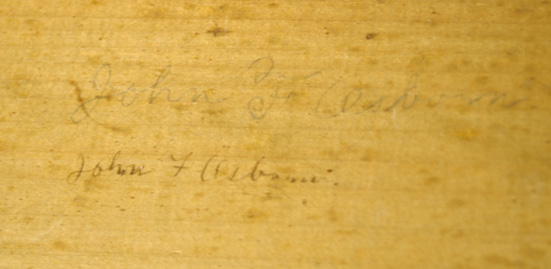 John F Osborn
John F Osborn